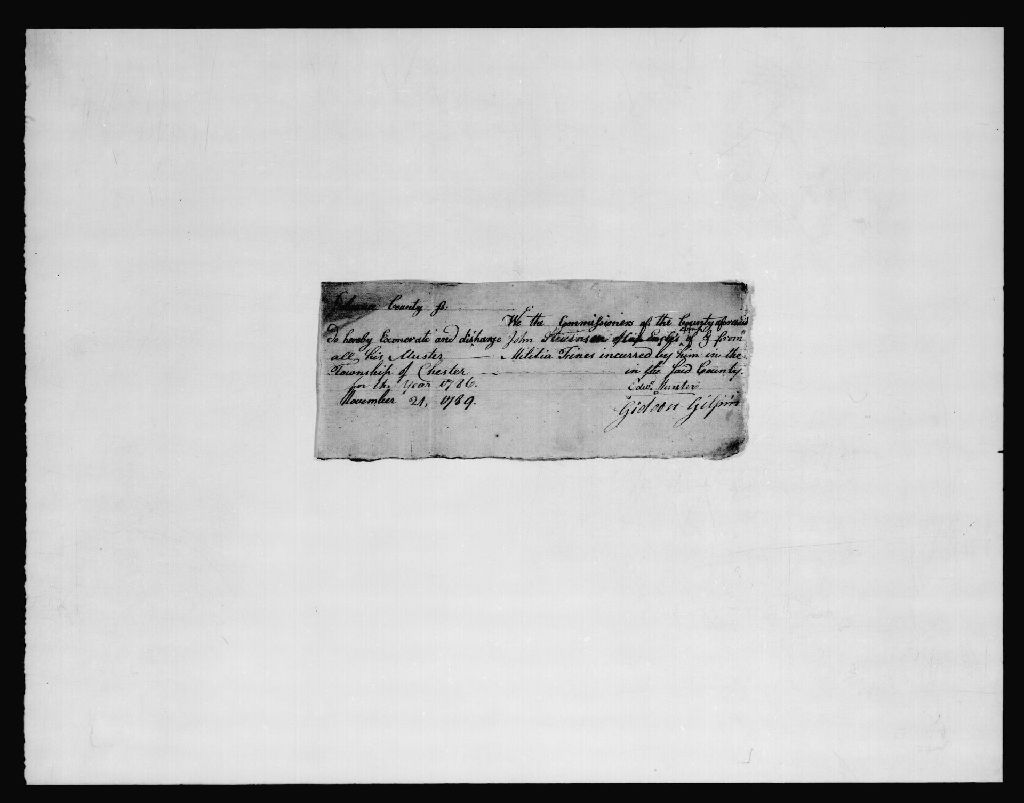 Delaware County ss.
We the Commissioners of the County aforesaid
Do hereby Exonerate and discharge John Stevenson of Cap from
all his Muster Militia Fines incurred by him in the
Township of Chester in the said County
for the Year 1786.
November 24, 1789.
Edwd. Hunter
Gideon Gilpin